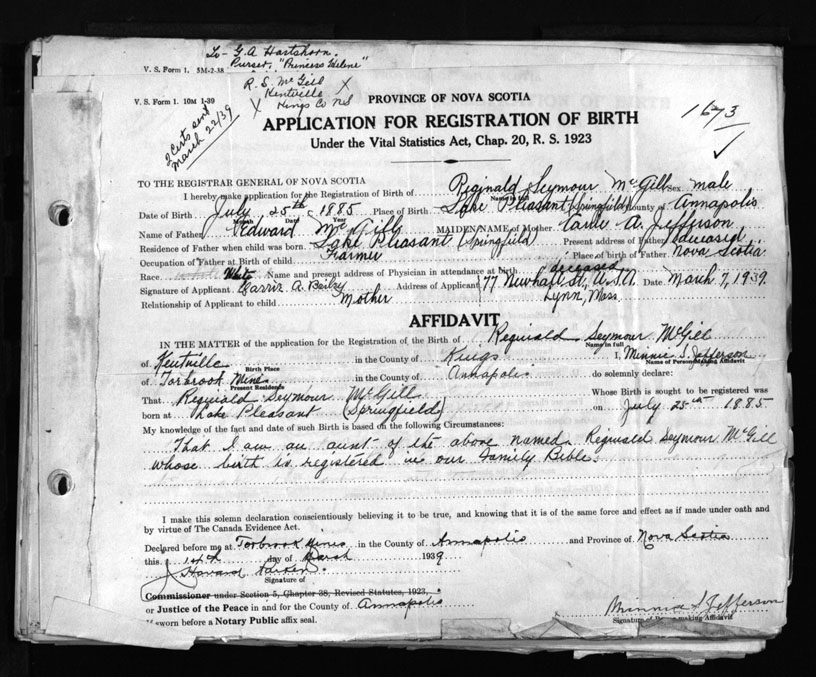 To- G.A. Hartshorn.
Purser, "Princess Helene"
V. S. Form 1. 5M-2-38
R. S. McGill X
Kentville
X Kings Co NS
V. S. Form 1. 10M 1-39
2 Certs sent
March 22/39
1673
PROVINCE OF NOVA SCOTIA
APPLICATION FOR REGISTRATION OF BIRTH
Under the Vital Statistics Act, Chap. 20, R. S. 1923
TO THE REGISTRAR GENERAL OF NOVA SCOTIA
I hereby make application for the Registration of Birth of Reginald Seymour McGill Sex male
Name in full
Date of Birth July 25th 1885 Place of Birth Lake Pleasant (Springfield) County of Annapolis
Month Day Year
Name of Father Edward McGill MAIDEN NAME of Mother A. Jefferson
Residence of Father when child was born Lake Pleasant (Springfield) Present address of Father deceased
Occupation of Father at Birth of child Farmer Place of birth of Father Nova Scotia
Race White Name and present address of Physician in attendance at birth deceased
Signature of Applicant A. Address of Applicant 77 Newhall St., U.S.A. Date March 7, 1939.
Relationship of Applicant to child Mother Lynn, Mass.
AFFIDAVIT
IN THE MATTER of the application for the Registration of the Birth of Reginald Seymour McGill
Name in full
of Kentville in the County of Kings I, Minnie S. Jefferson
Birth Place Name of Person Making Affidavit
of Torbrook Mine in the County of Annapolis do solemnly declare:
Present Residence
That Reginald Seymour McGill Whose Birth is sought to be registered was
born at Lake Pleasant (Springfield) on July 25th 1885
My knowledge of the fact and date of such Birth is based on the following Circumstances:
That I am an aunt of the above named Reginald Seymour McGill
whose birth is registered in our Family Bible.
I make this solemn declaration conscientiously believing it to be true, and knowing that it is of the same force and effect as if made under oath and
by virtue of The Canada Evidence Act.
Declared before me at Torbrook Mines in the County of Annapolis and Province of Nova Scotia
this 14th day of March 1939
Signature of
Commissioner under Section 5, Chapter 38, Revised Statutes, 1923,
or Justice of the Peace in and for the County of Annapolis
If sworn before a Notary Public affix seal.
Minnie S Jefferson
Signature of Person making Affidavit